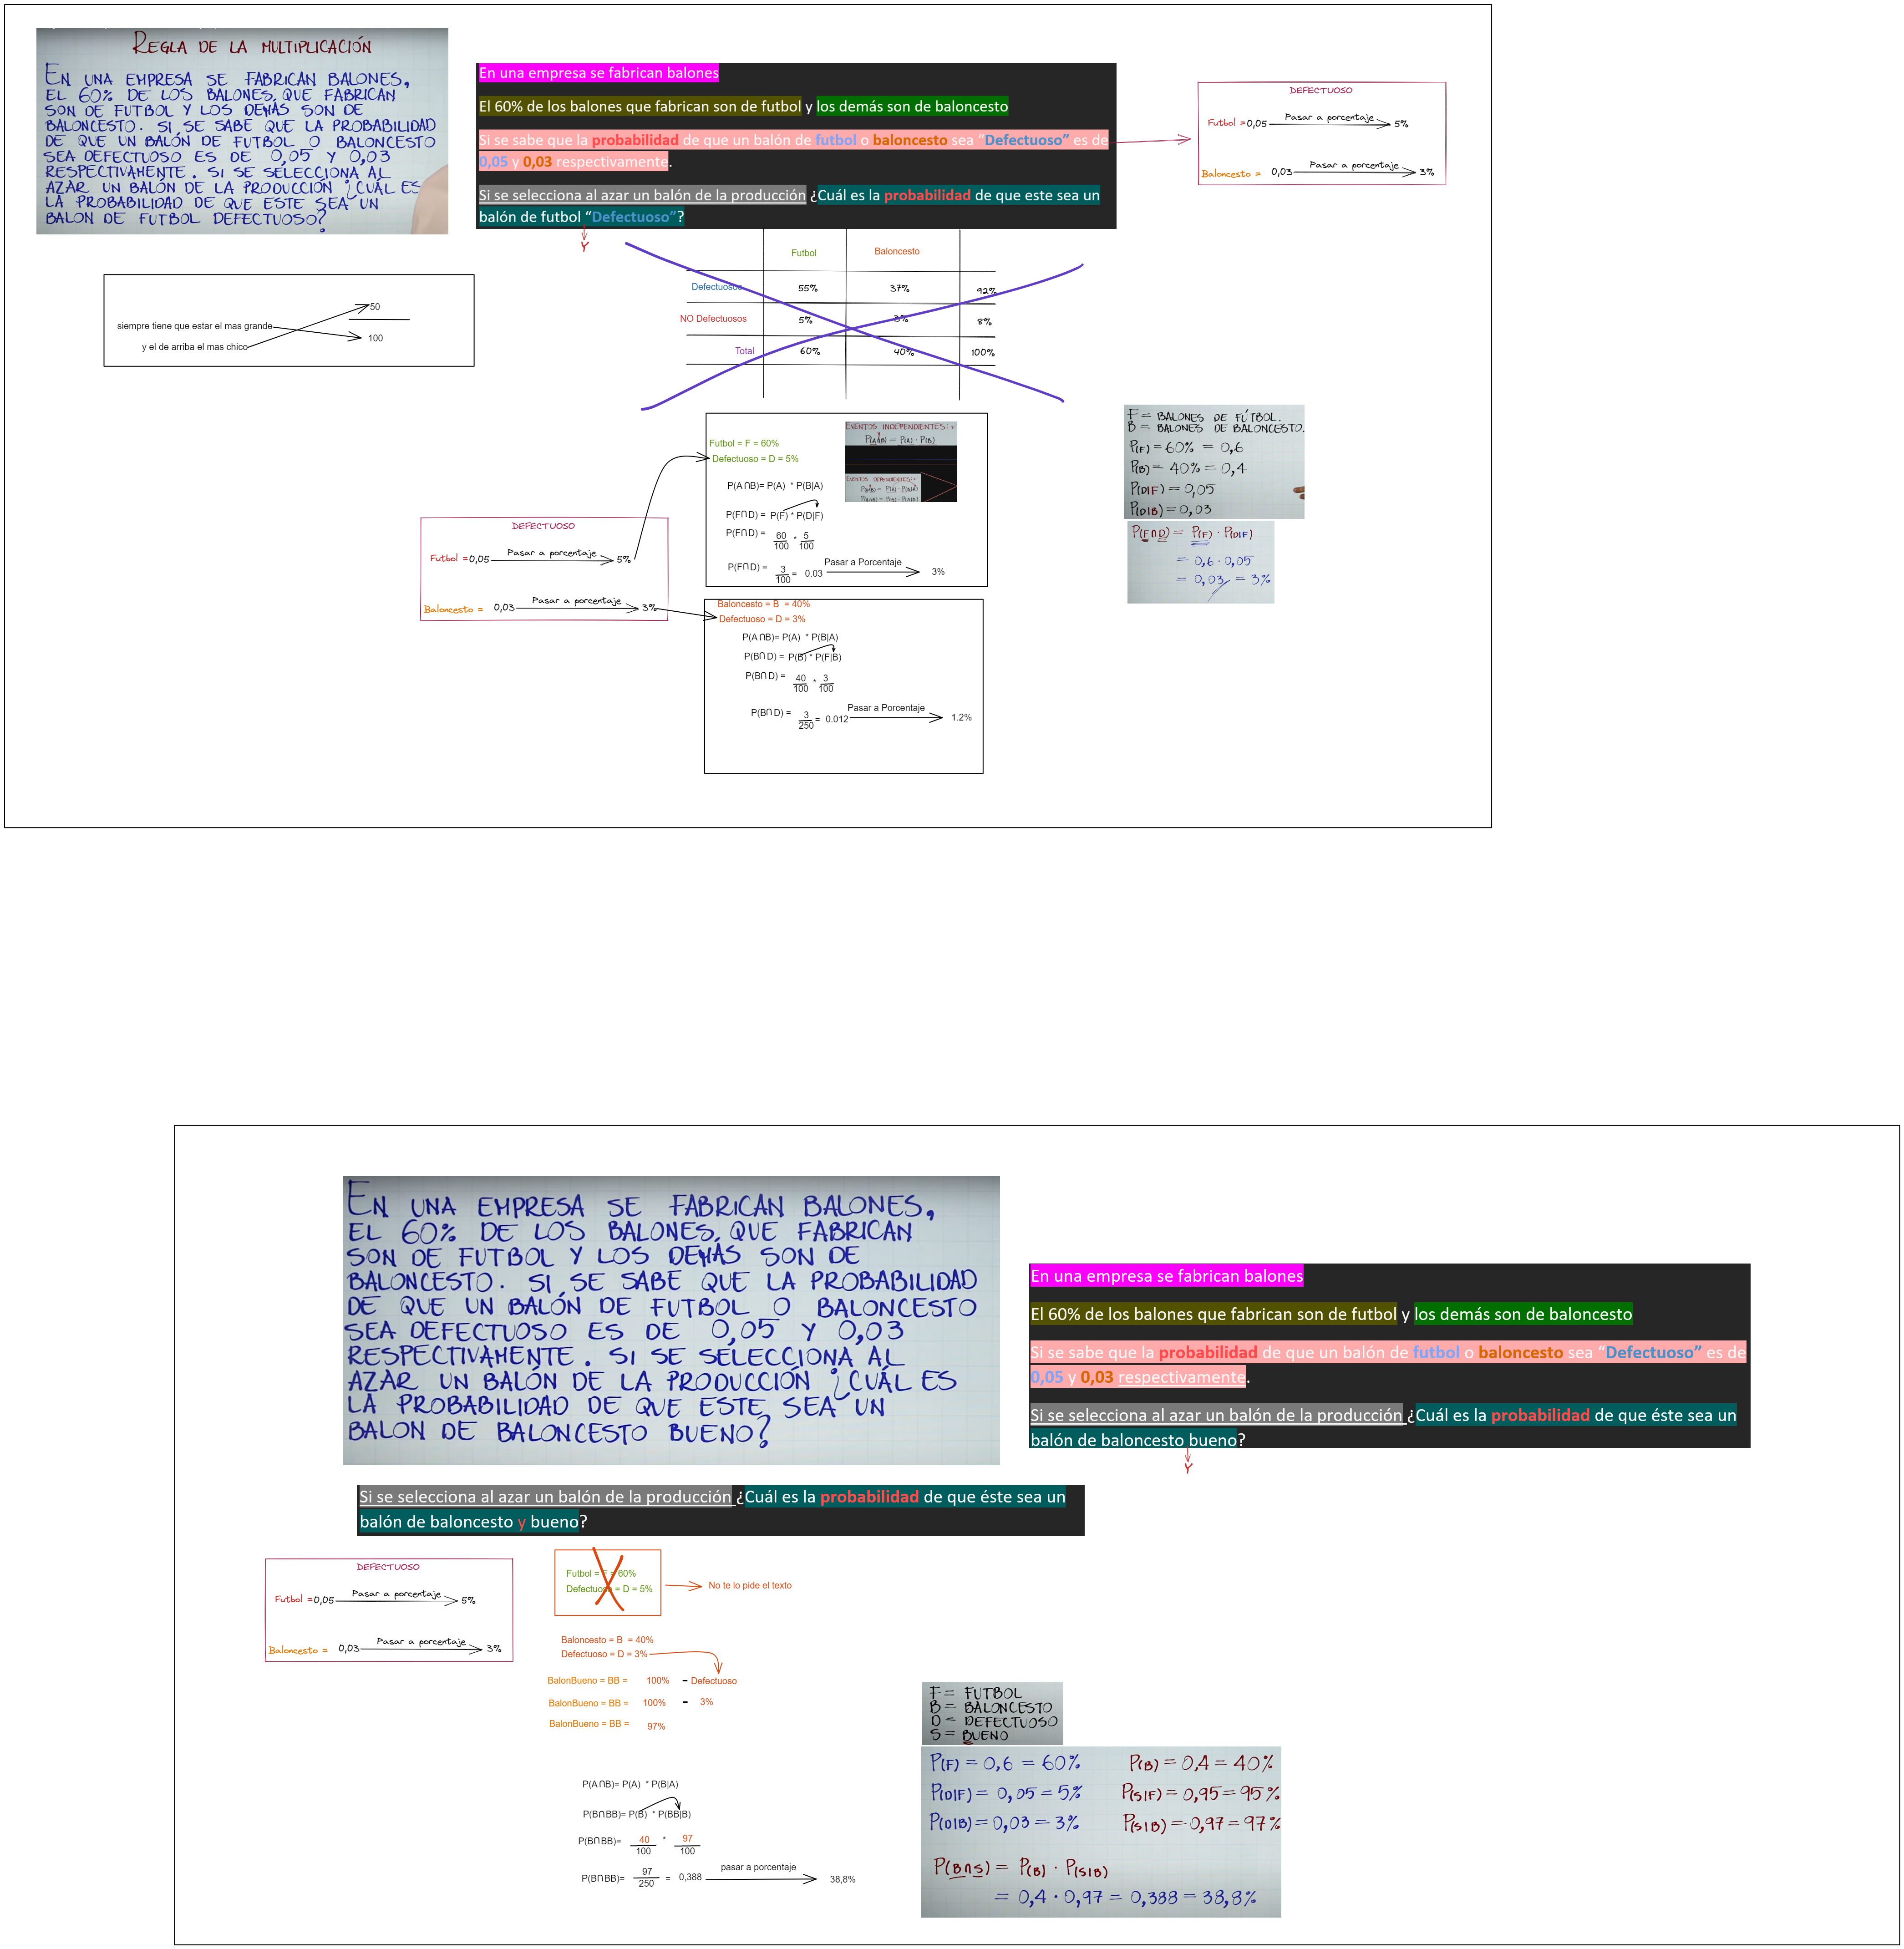 REGLA DE LA MULTIPLICACIÓN
EN UNA EMPRESA SE FABRICAN BALONES,
EL 60% DE LOS BALONES QUE FABRICAN
SON DE FUTBOL Y LOS DEMÁS SON DE
BALONCESTO. SI SE SABE QUE LA PROBABILIDAD
DE QUE UN BALÓN DE FUTBOL O BALONCESTO
SEA DEFECTUOSO ES DE 0,05 Y 0,03
RESPECTIVAMENTE. SI SE SELECCIONA AL
AZAR UN BALÓN DE LA PRODUCCIÓN ¿CUÁL ES
LA PROBABILIDAD DE QUE ESTE SEA UN
BALON DE FUTBOL DEFECTUOSO?
En una empresa se fabrican balones
El 60% de los balones que fabrican son de futbol y los demás son de baloncesto
Si se sabe que la probabilidad de que un balón de futbol o baloncesto sea “Defectuoso” es de
0,05 y 0,03 respectivamente.
Si se selecciona al azar un balón de la producción ¿Cuál es la probabilidad de que este sea un
balón de futbol “Defectuoso”?
Y
DEFECTUOSO
Futbol = 0,05 Pasar a porcentaje 5%
Baloncesto = 0,03 Pasar a porcentaje 3%
siempre tiene que estar el mas grande
y el de arriba el mas chico
50
100
Futbol Baloncesto
Defectuosos 55% 37% 92%
NO Defectuosos 5% 3% 8%
Total 60% 40% 100%
DEFECTUOSO
Futbol = 0,05 Pasar a porcentaje 5%
Baloncesto = 0,03 Pasar a porcentaje 3%
Futbol = F = 60%
Defectuoso = D = 5%
P(A∩B)= P(A) * P(B|A)
P(F∩D) = P(F) * P(D|F)
P(F∩D) = 60/100 * 5/100
P(F∩D) = 3/100 = 0.03 Pasar a Porcentaje 3%
EVENTOS INDEPENDIENTES:
P(A∩B) = P(A) · P(B)
EVENTOS DEPENDIENTES:
P(A∩B) = P(A) · P(B|A)
P(A∩B) = P(B) · P(A|B)
Baloncesto = B = 40%
Defectuoso = D = 3%
P(A∩B)= P(A) * P(B|A)
P(B∩D) = P(B) * P(F|B)
P(B∩D) = 40/100 * 3/100
P(B∩D) = 3/250 = 0.012 Pasar a Porcentaje 1.2%
F = BALONES DE FÚTBOL.
B = BALONES DE BALONCESTO.
P(F) = 60% = 0,6
P(B) = 40% = 0,4
P(D|F) = 0,05
P(D|B) = 0,03
P(F∩D) = P(F) · P(D|F)
= 0,6 · 0,05
= 0,03 = 3%
EN UNA EMPRESA SE FABRICAN BALONES,
EL 60% DE LOS BALONES QUE FABRICAN
SON DE FUTBOL Y LOS DEMÁS SON DE
BALONCESTO. SI SE SABE QUE LA PROBABILIDAD
DE QUE UN BALÓN DE FUTBOL O BALONCESTO
SEA DEFECTUOSO ES DE 0,05 Y 0,03
RESPECTIVAMENTE. SI SE SELECCIONA AL
AZAR UN BALÓN DE LA PRODUCCIÓN ¿CUÁL ES
LA PROBABILIDAD DE QUE ESTE SEA UN
BALON DE BALONCESTO BUENO?
En una empresa se fabrican balones
El 60% de los balones que fabrican son de futbol y los demás son de baloncesto
Si se sabe que la probabilidad de que un balón de futbol o baloncesto sea “Defectuoso” es de
0,05 y 0,03 respectivamente.
Si se selecciona al azar un balón de la producción ¿Cuál es la probabilidad de que éste sea un
balón de baloncesto bueno?
Y
Si se selecciona al azar un balón de la producción ¿Cuál es la probabilidad de que éste sea un
balón de baloncesto y bueno?
DEFECTUOSO
Futbol = 0,05 Pasar a porcentaje 5%
Baloncesto = 0,03 Pasar a porcentaje 3%
Futbol = F = 60%
Defectuoso = D = 5%
No te lo pide el texto
Baloncesto = B = 40%
Defectuoso = D = 3%
BalonBueno = BB = 100% - Defectuoso
BalonBueno = BB = 100% - 3%
BalonBueno = BB = 97%
P(A∩B)= P(A) * P(B|A)
P(B∩BB)= P(B) * P(BB|B)
P(B∩BB)= 40/100 * 97/100
P(B∩BB)= 97/250 = 0,388 pasar a porcentaje 38,8%
F = FUTBOL
B = BALONCESTO
D = DEFECTUOSO
S = BUENO
P(F) = 0,6 = 60% P(B) = 0,4 = 40%
P(D|F) = 0,05 = 5% P(S|F) = 0,95 = 95%
P(D|B) = 0,03 = 3% P(S|B) = 0,97 = 97%
P(B∩S) = P(B) · P(S|B)
= 0,4 · 0,97 = 0,388 = 38,8%